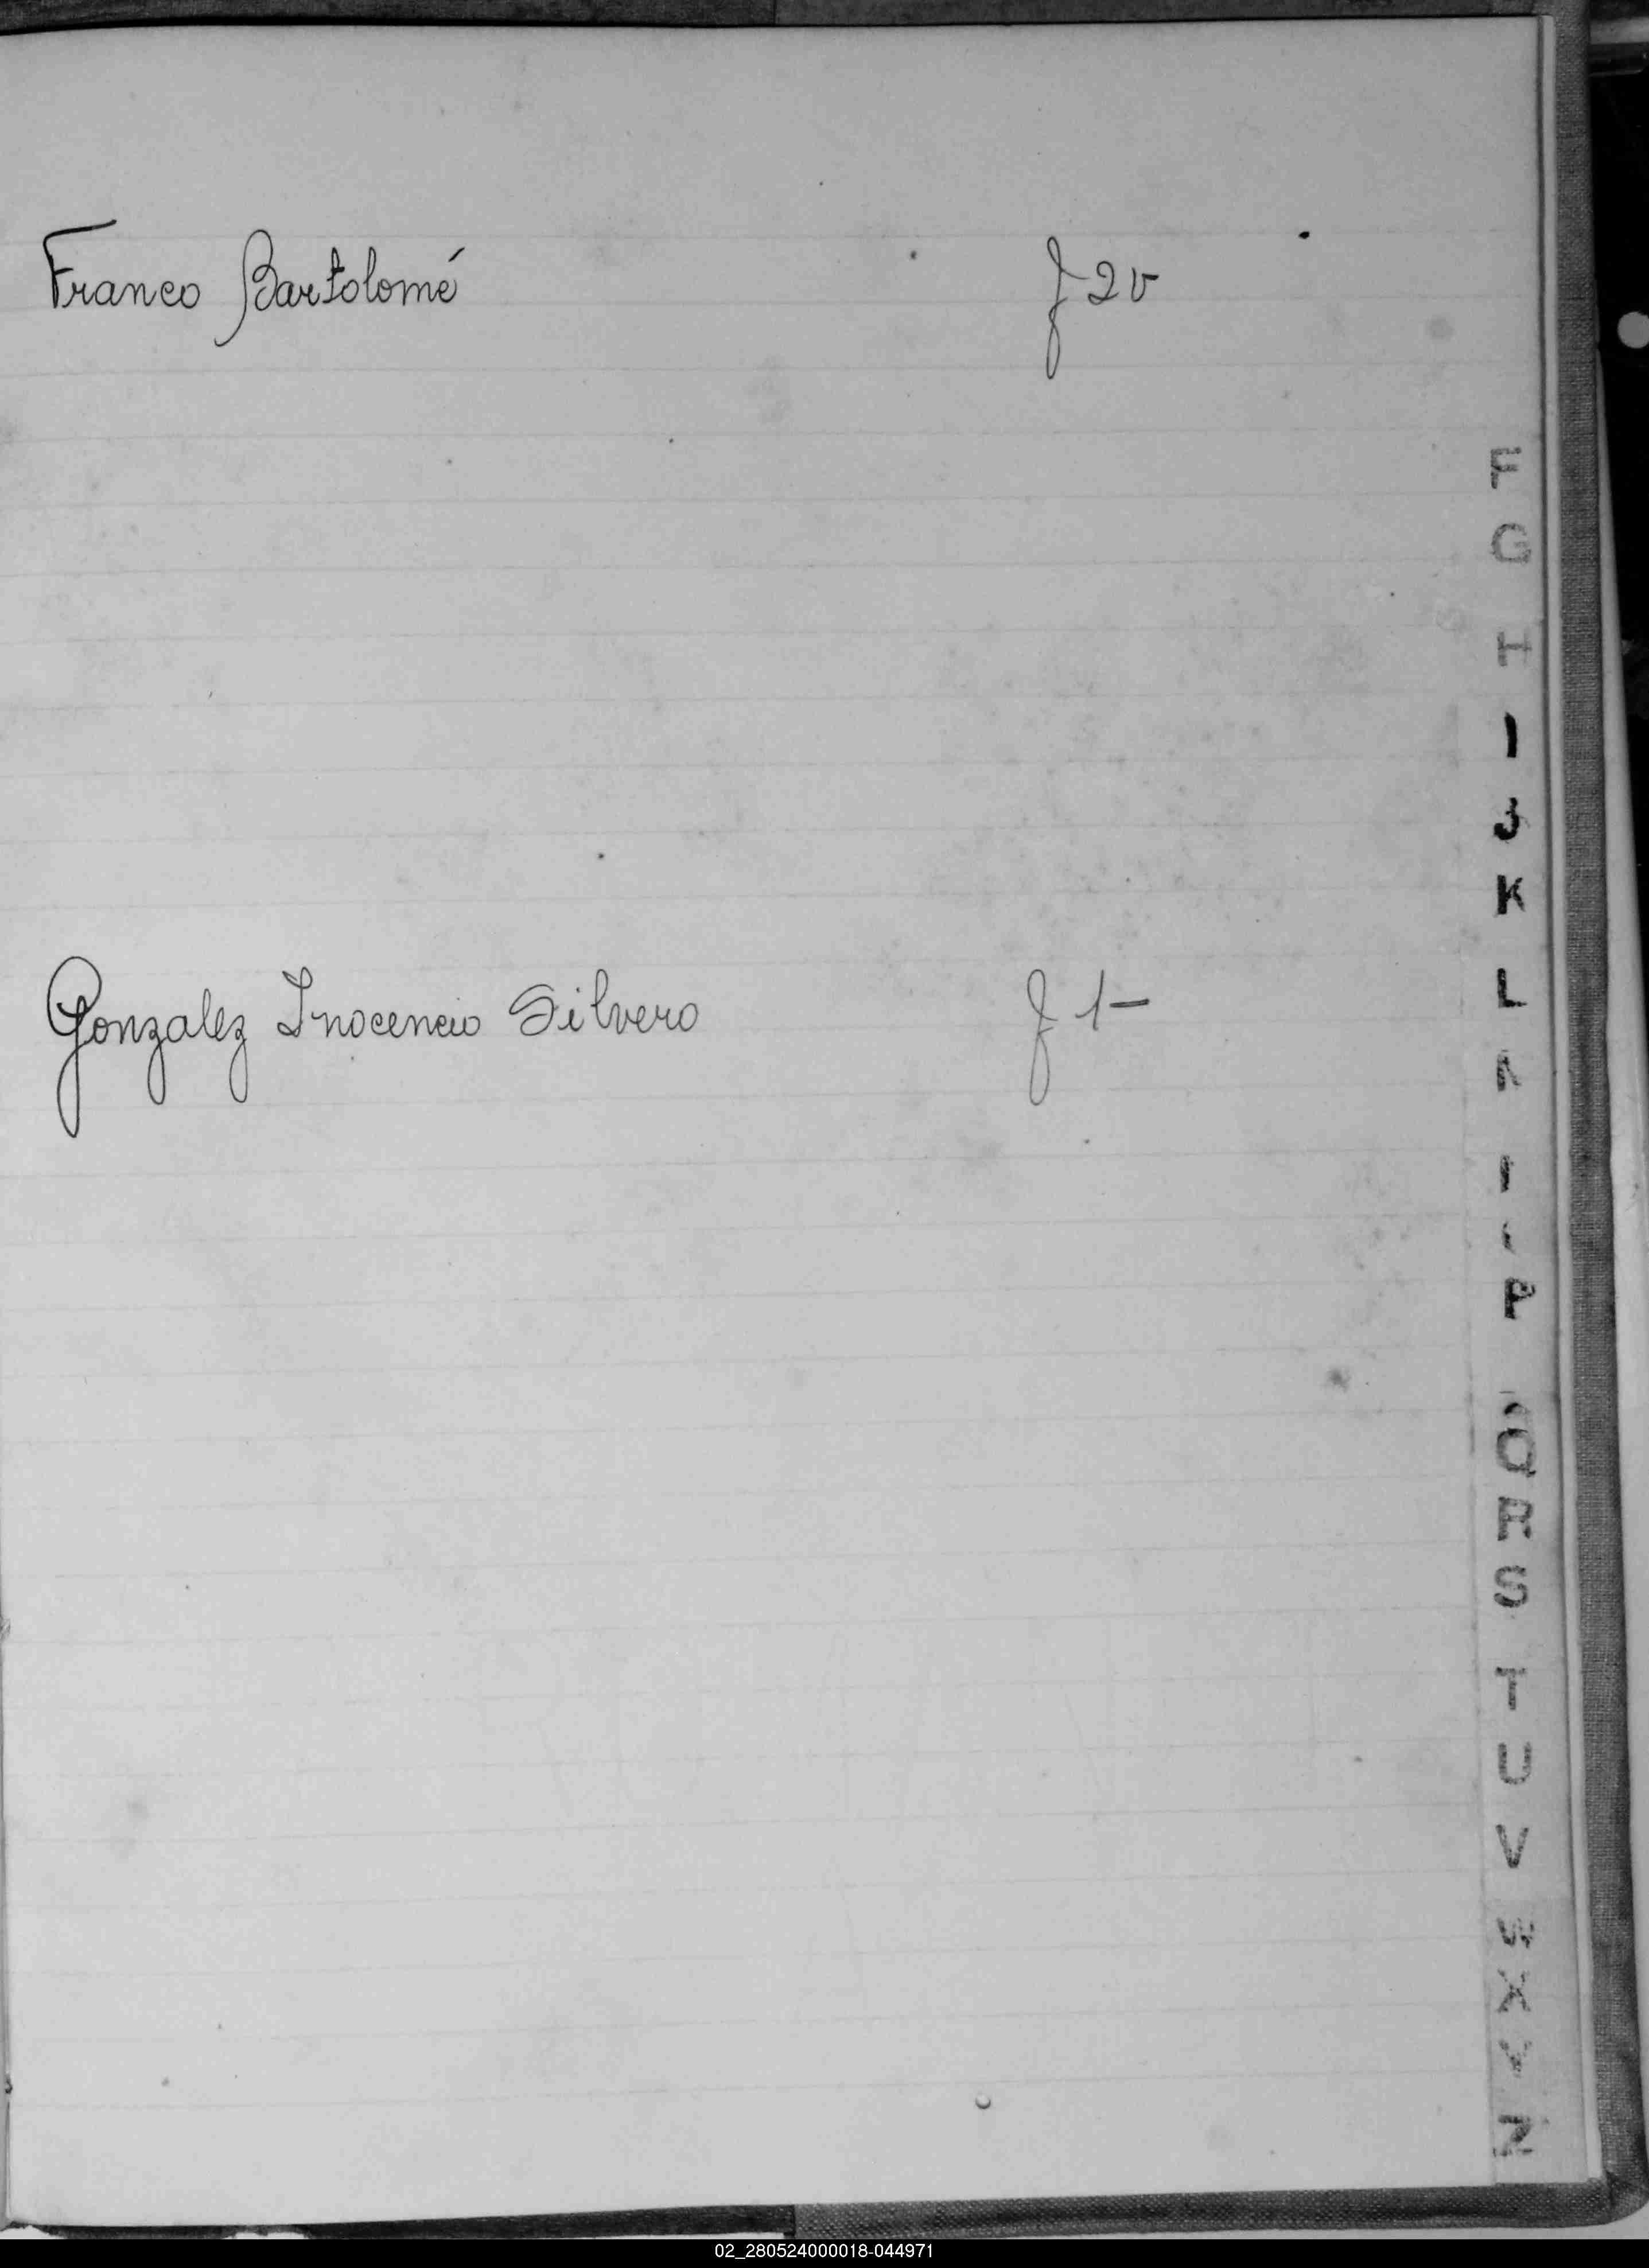 Franco Bartolomé f 2v
F
G
H
I
J
K
Gonzalez Inocencio Silvero f 1-
L
P
Q
R
S
T
U
V
W
X
Y
Z
02_280524000018-044971